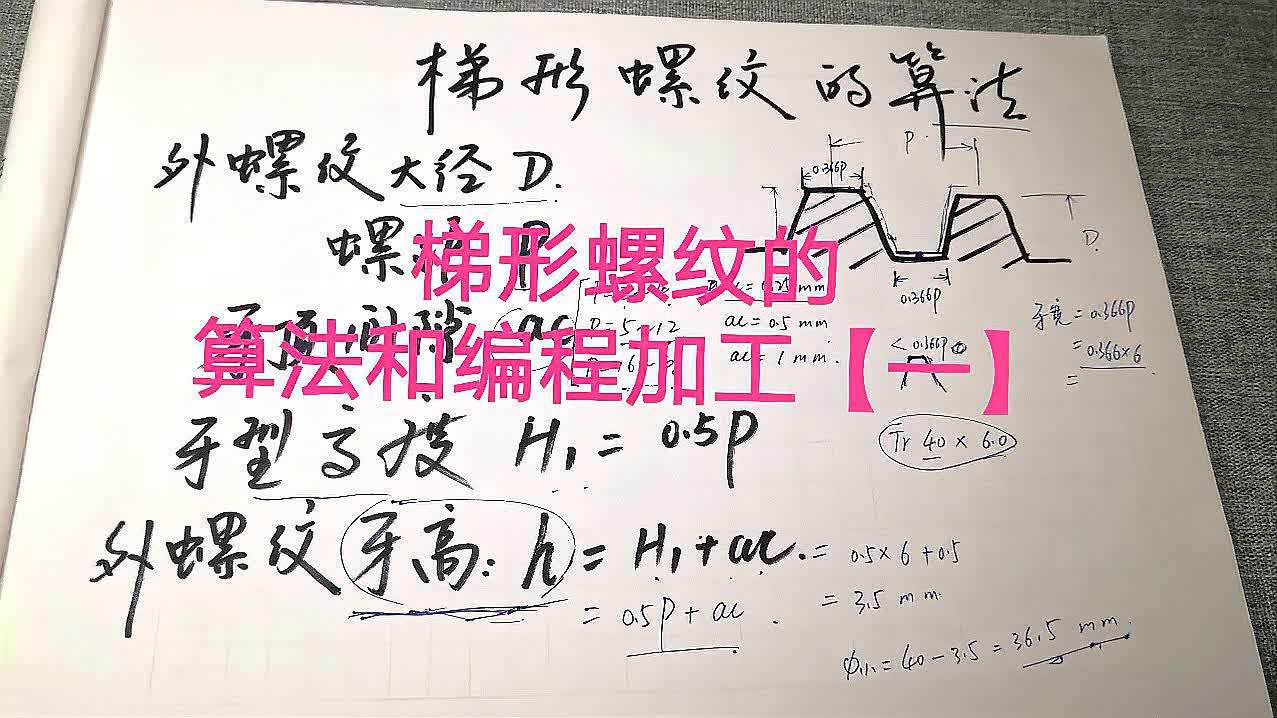 梯形螺纹的算法
外螺纹大径 D.
P.
0.366P
D.
0.366P
梯形螺纹的
算法和编程加工【一】
ac
ac = 0.5 mm
ac = 1 mm.
< 0.366P
牙宽 = 0.366P
= 0.366×6
=
Tr 40 × 6.0
牙型高度 H₁ = 0.5P
外螺纹牙高: h = H₁ + ac. = 0.5×6 + 0.5
= 0.5P + ac. = 3.5 mm.
= 40 - 3.5 = 36.5 mm.